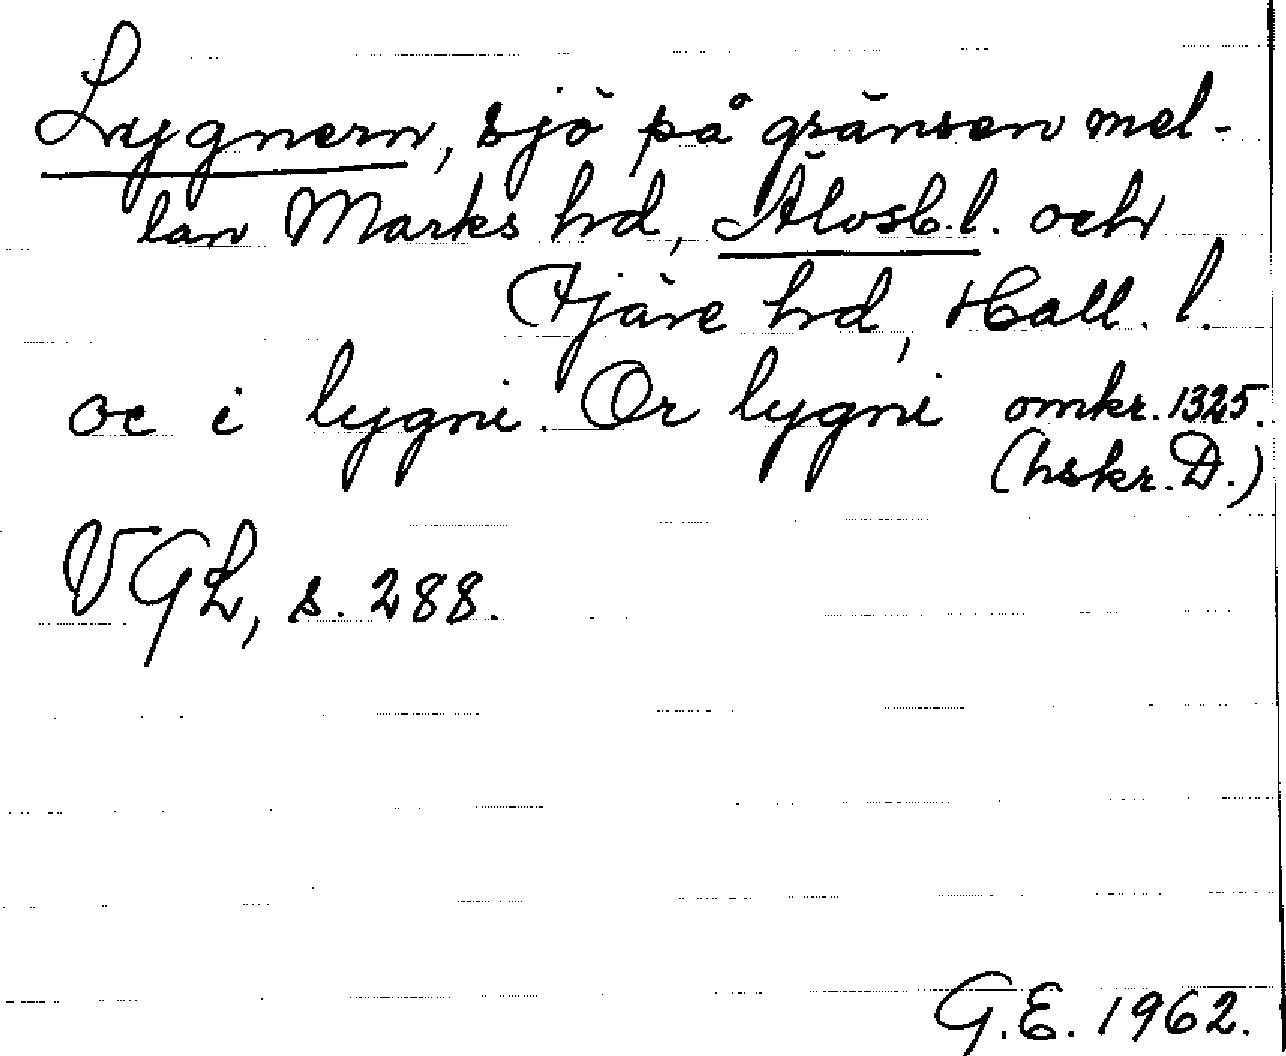 Lygnern, sjö på gränsen mel-
lan Marks hd, Älvsb. l. och
Fjäre hd, Hall. l.
oc i lygni. Or lygni omkr. 1325.
(hskr. D.)
VGL, s. 288.
G.E. 1962.